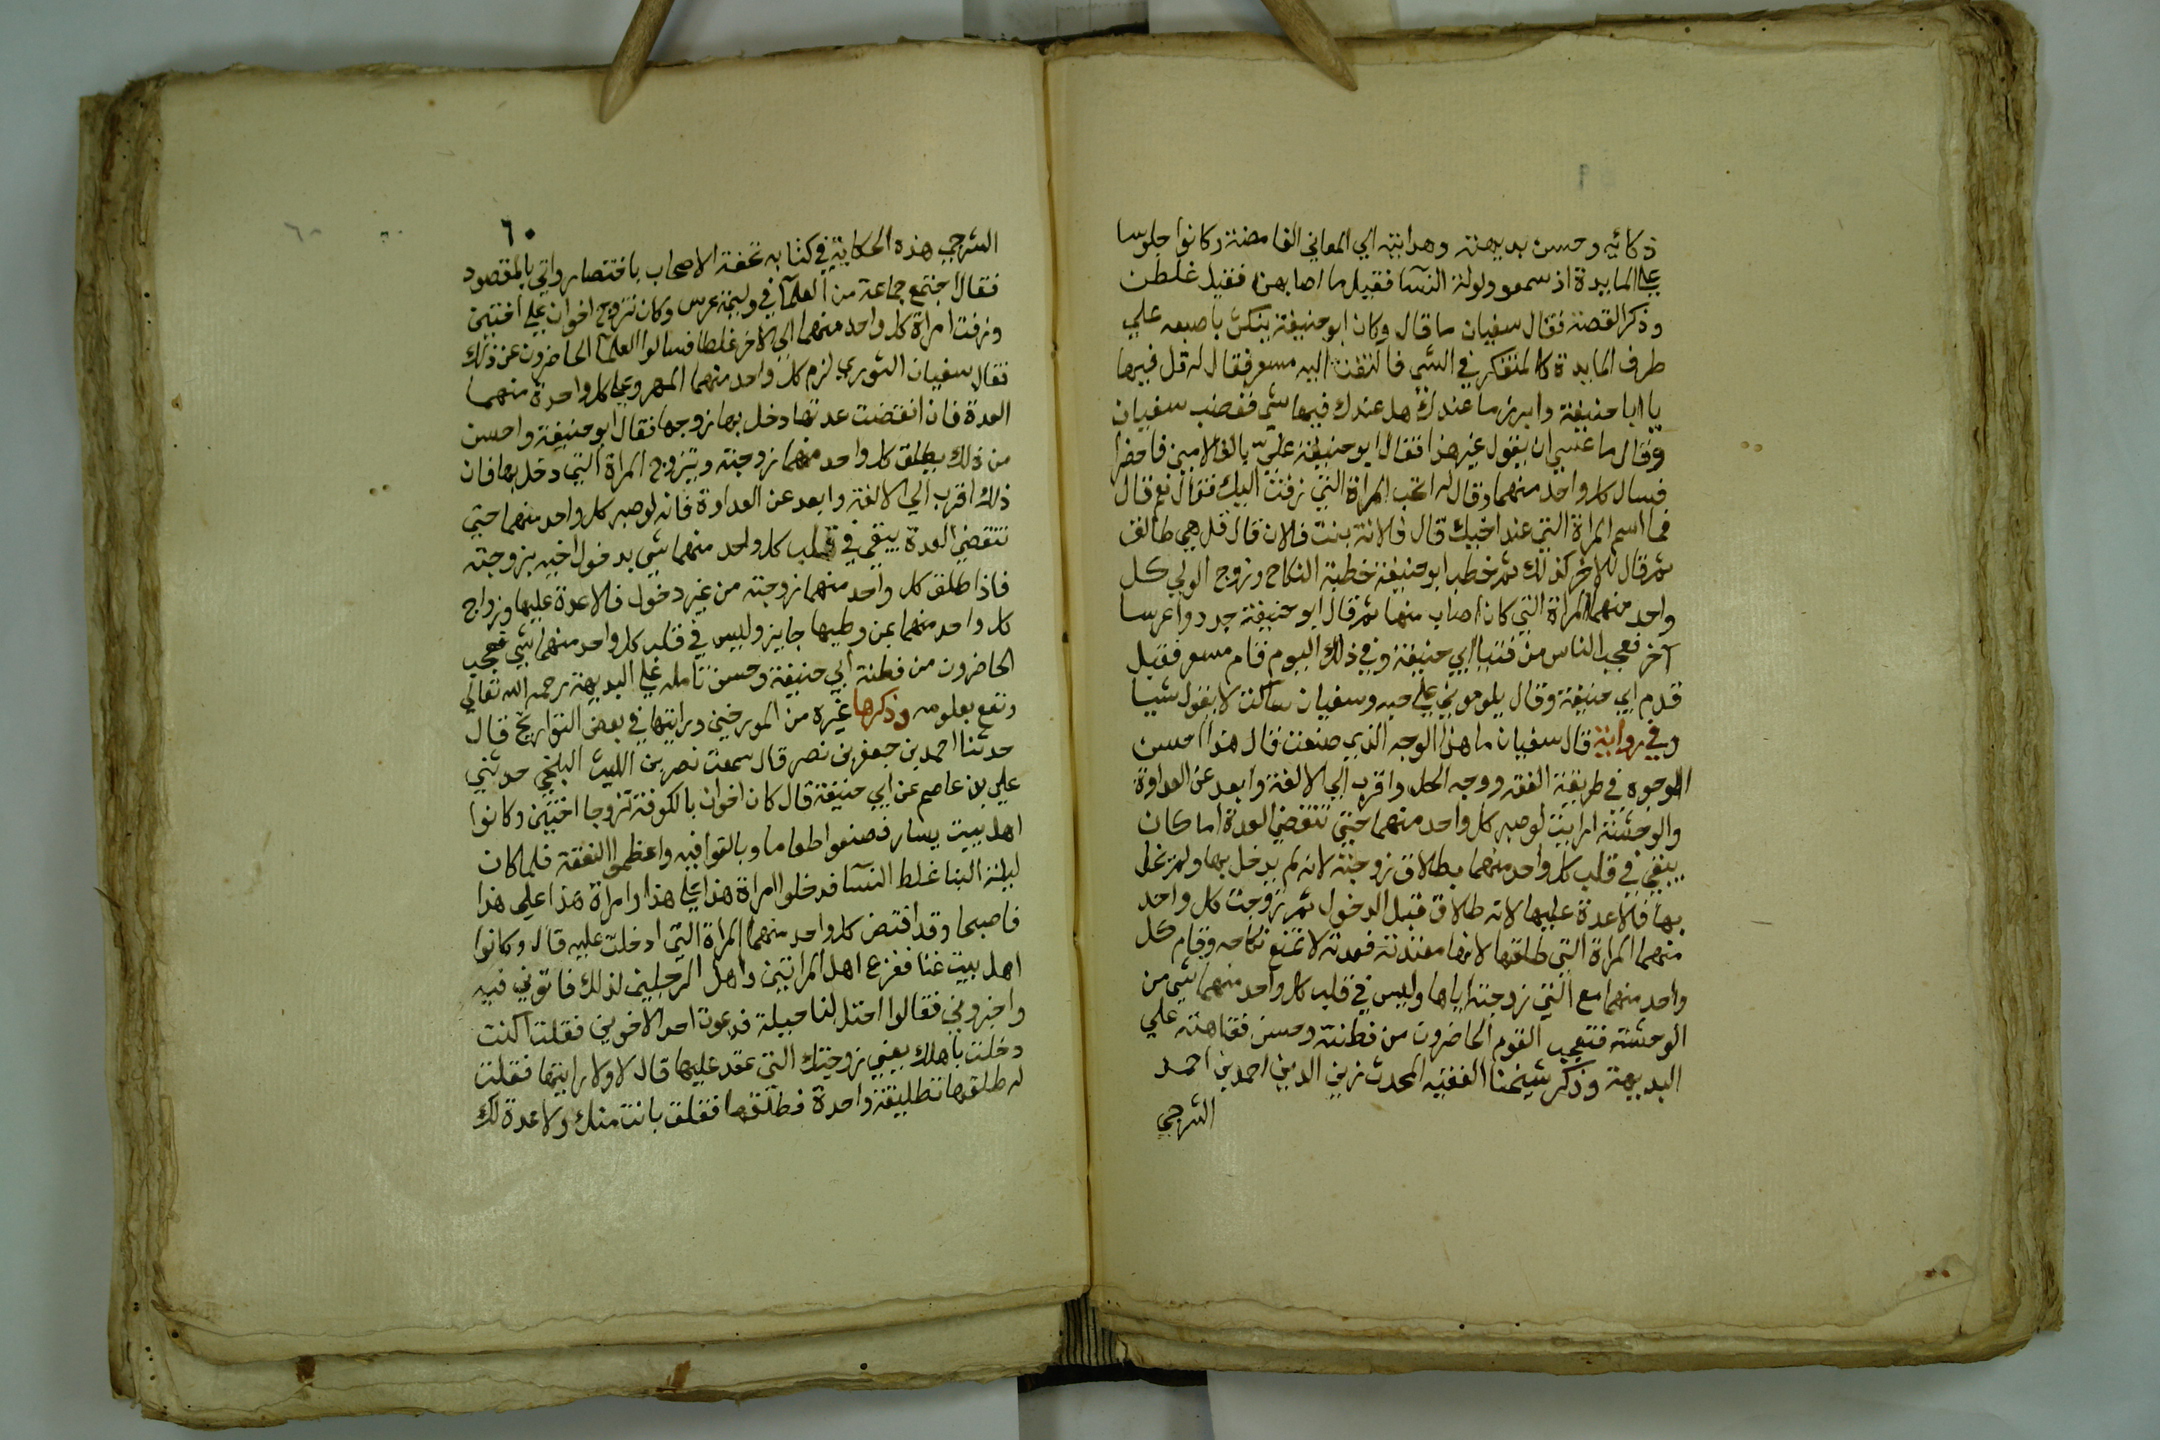 ذكائه وحسن بديهته وهدايته الي المعاني الغامضة وكانوا جلوسا
علي المايدة اذ سمعو ولولة النسآ فقيل ما اصابهن فقيل غلطن
وذكر القصة فقال سفيان ما قال وكان ابو حنيفة ينكت باصبعه علي
طرف المايدة كالمتفكر في الشي فالتفت اليه مسعر فقال له قل فيها
يا ابا حنيفة وابرز ما عندك هل عندك فيها شي فغضب سفيان
وقال ما عسي ان يقول غير هذا فقال ابو حنيفة عليّ بالغلامين فاحضرا
فسال كل واحد منهما وقال له اتحب المراة التي زفت اليك فقال نعم قال
فما اسم المراة التي عند اخيك قال فلانة بنت فلان قال قل هي طالق
ثم قال للاخر كذلك ثم خطب ابو حنيفة خطبة النكاح وزوج الولي كل
واحد منهما المراة التي كان اصاب منها ثم قال ابو حنيفة جددوا عرسا
آخر فعجب الناس من فتيا ابي حنيفة وفي ذلك اليوم قام مسعر فقبل
قدم ابي حنيفة وقال يلوموني علي حبه وسفيان ساكت لا يقول شيا
وفي رواية قال سفيان ما هذا الوجه الذي صنعت قال هذا احسن
الوجوه في طريقة الفقه ووجه الحل واقرب الي الالفة وابعد عن العداوة
والوحشة ارايت لو صبر كل واحد منهما حتي تنقضي العدة اما كان
يبقي في قلب كل واحد منهما بطلاق زوجته لانه لم يدخل بها ولم يخل
بها فلا عدة عليها لانه طلاق قبل الدخول ثم زوجت كل واحد
منهما المراة التي طلقها لانها معتدته فعدته لا تمنع نكاحه وقام كل
واحد منهما مع التي زوجته اياها وليس في قلب كل واحد منهما شي من
الوحشة فتعجب القوم الحاضرون من فطنته وحسن فقاهته علي
البديهة وذكر شيخنا الفقيه المحدث زين الدين احمد بن احمد
الشرجي
٦٠
الشرجي هذه الحكاية في كتابه تحفة الاصحاب باختصار واتي بالمقصود
فقال اجتمع جماعة من العلمآ في وليمة عرس وكان تزوج اخوان علي اختين
وزفت امراة كل واحد منهما الي الاخر غلطا فسالوا العلمآ الحاضرون عن ذلك
فقال سفيان الثوري لزم كل واحد منهما المهر وعلي كل واحدة منهما
العدة فان انقضت عدتها دخل بها زوجها فقال ابو حنيفة واحسن
من ذلك يطلق كل واحد منهما زوجته ويتزوج المراة التي دخل بها فان
ذلك اقرب الي الالفة وابعد عن العداوة فانه لو صبر كل واحد منهما حتي
تنقضي العدة يبقي في قلب كل واحد منهما شي بدخول اخيه بزوجته
فاذا طلق كل واحد منهما زوجته من غير دخول فلا عدة عليها وزواج
كل واحد منهما بمن وطيها جايز وليس في قلب كل واحد منهما شي فعجب
الحاضرون من فطنة ابي حنيفة وحسن تامله علي البديهة رحمه الله تعالي
ونفع بعلومه وذكرها غيره من المورخين ورايتها في بعض التواريخ قال
حدثنا احمد بن جعفر بن نصر قال سمعت نصر بن الليث البلخي حدثني
علي بن عاصم عن ابي حنيفة قال كان اخوان بالكوفة تزوجا اختين وكانوا
اهل بيت يسار فصنعوا طعاما وبالغوا فيه واعظموا النفقة فلما كان
ليلة البنا غلط النسآ فدخلوا امراة هذا علي هذا وامراة هذا علي هذا
فاصبحا وقد افتض كل واحد منهما المراة التي ادخلت عليه قال وكانوا
اهل بيت غنا ففزع اهل المراتين واهل الرجلين لذلك فاتوني فيه
واخبروني فقالوا احتل لنا حيلة فدعوت احد الاخوين فقلت اكنت
دخلت باهلك يعني زوجتك التي عقد عليها قال لا ولا رايتها فقلت
له طلقها تطليقة واحدة فطلقها فقلت بانت منك ولا عدة لك